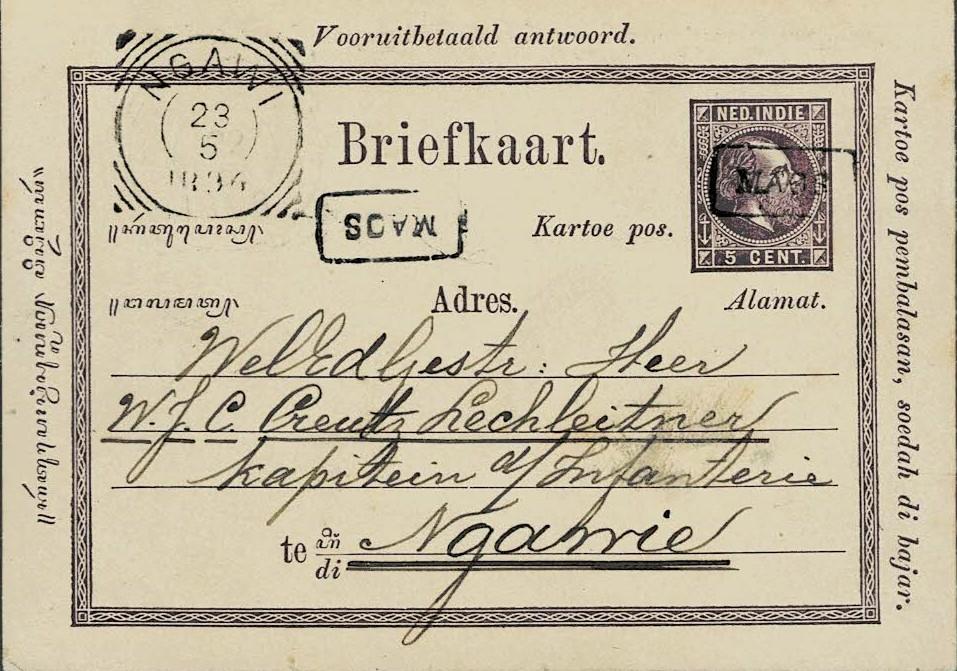 Vooruitbetaald antwoord.
NGAWI
23
5
Briefkaart.
NED.INDIE
MAOS
MAOS
Kartoe pos.
5 CENT.
Adres.
Alamat.
WelEdGestr: Heer
W.J.C. Creutz Lechleitner
Kapitein d/ Infanterie
te
di
Ngawie
Kartoe pos pembalasan, soedah di bajar.